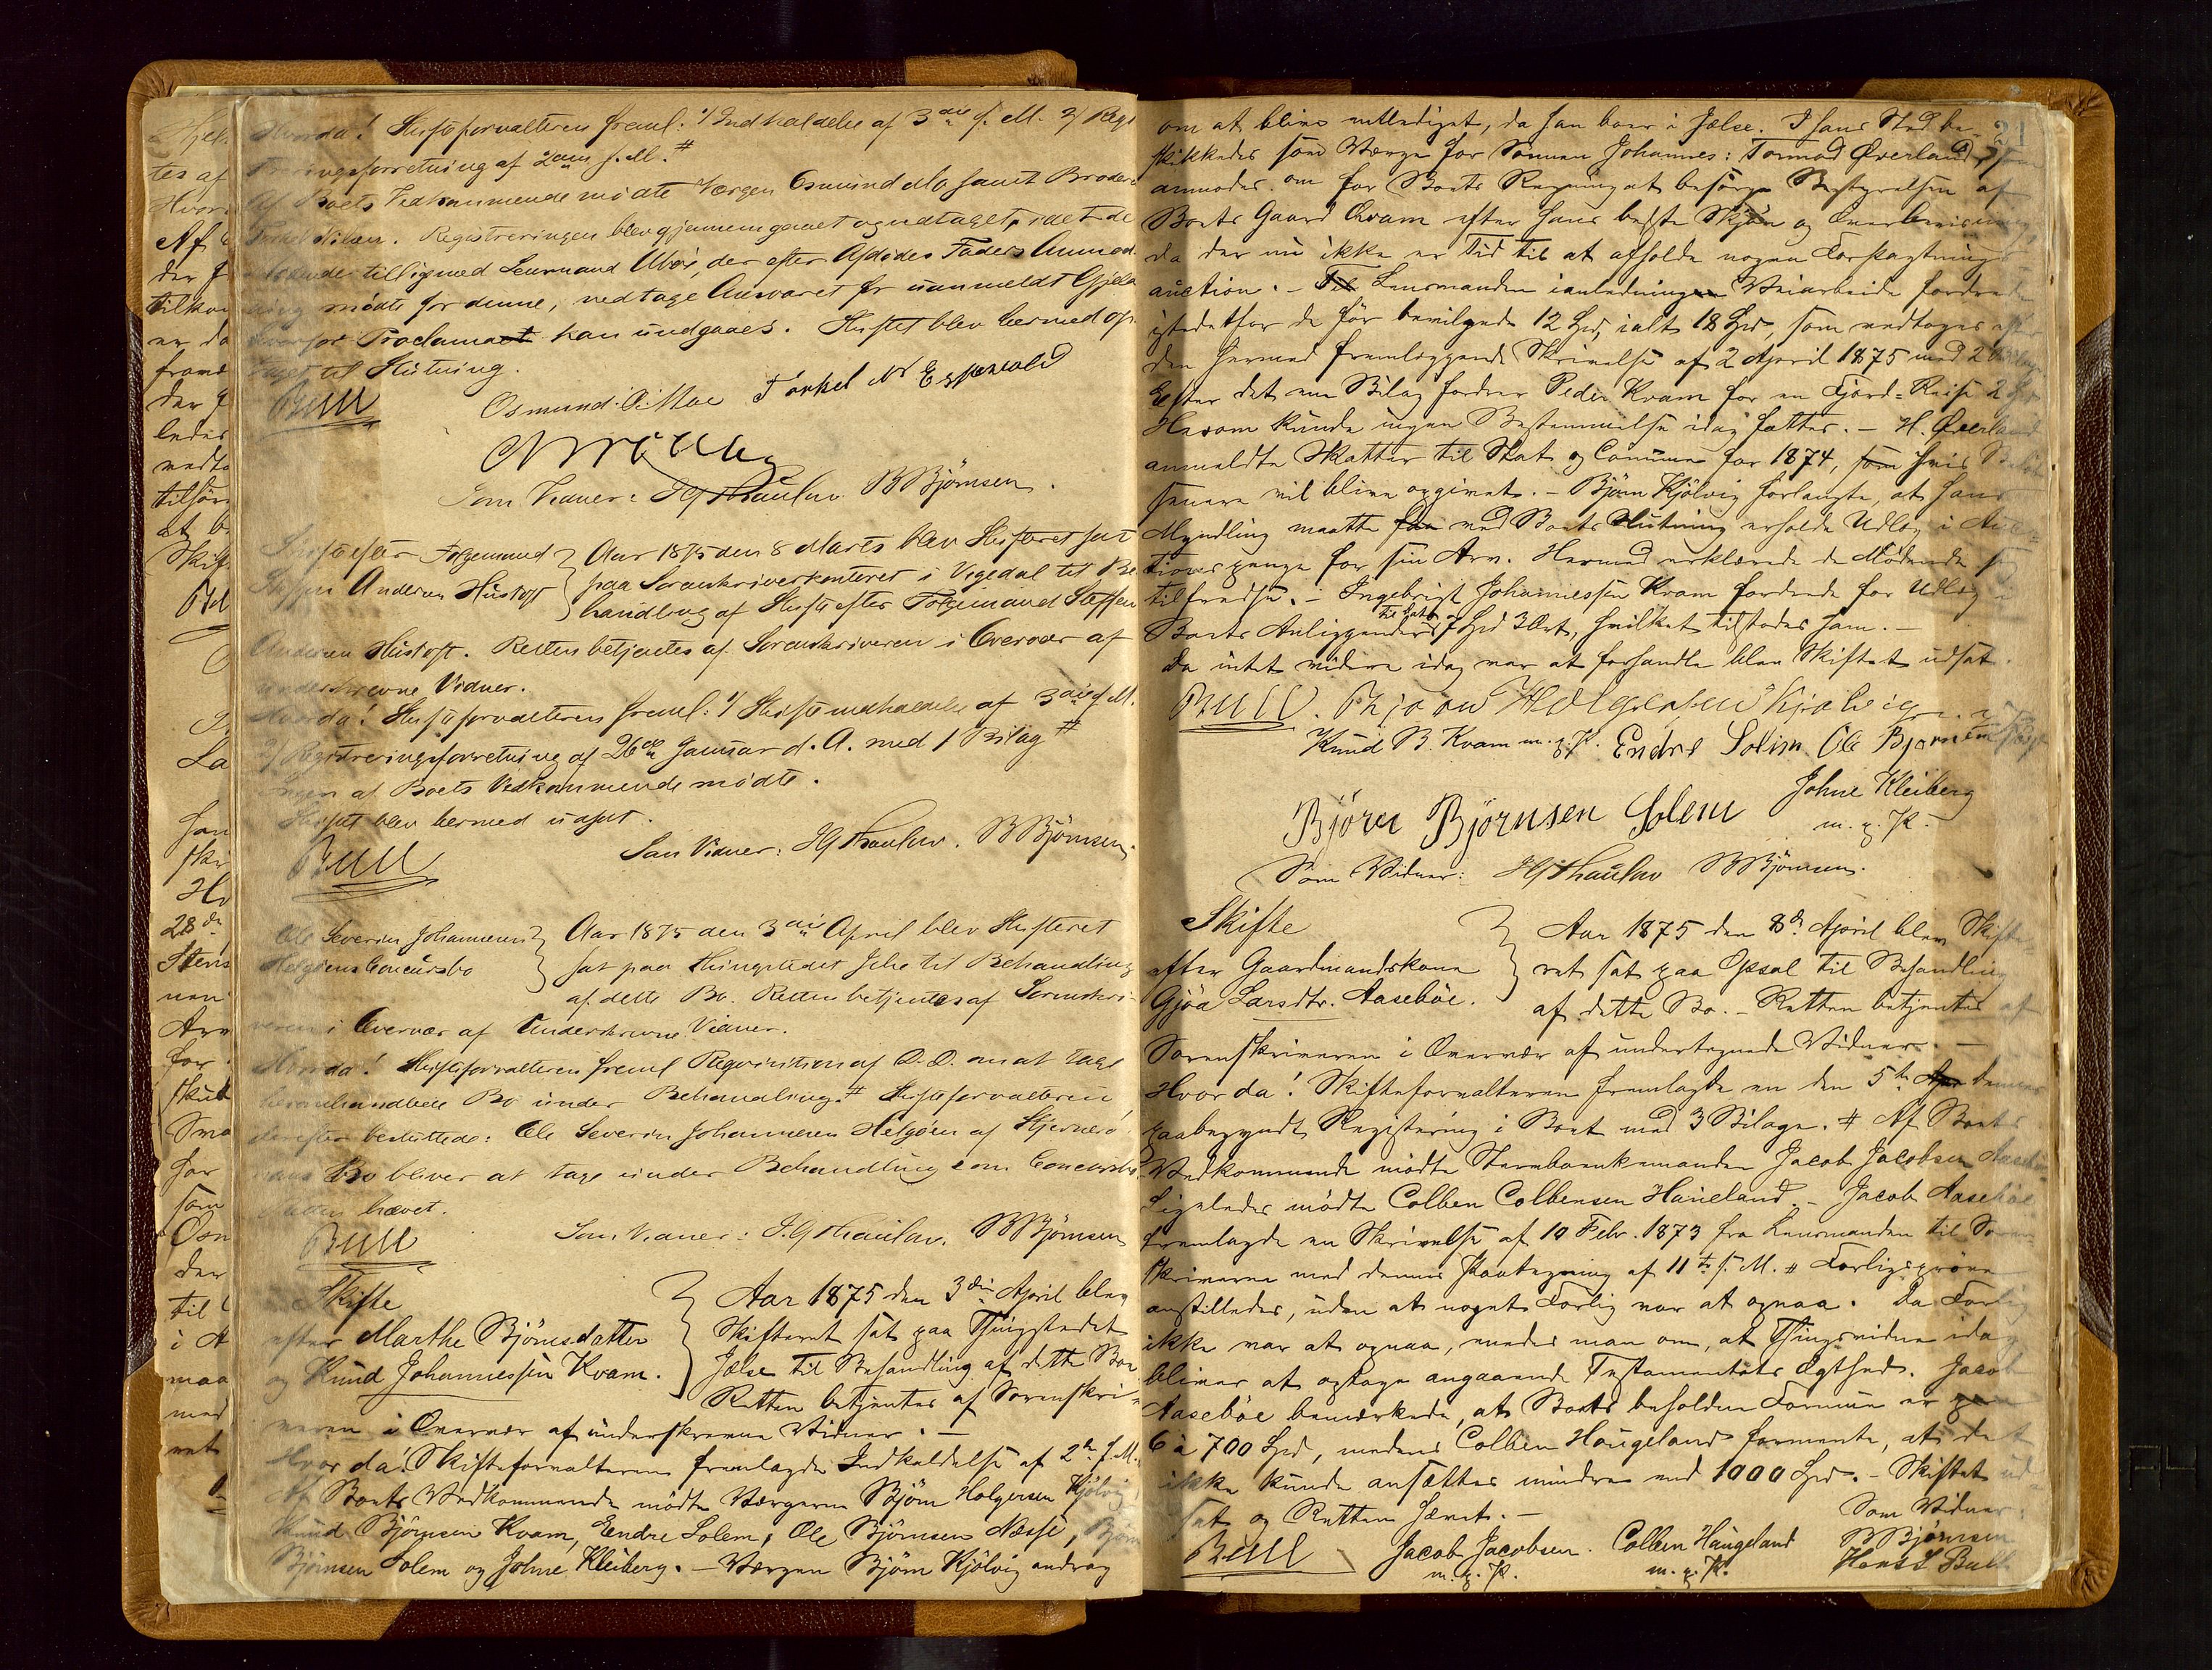 Hvorda! Skifteforvalteren freml: 1/ Indkaldelse af 3die f. M. 2/ Regi
streringsforretning af 2den f. M. #
Af Boets Vedkommende mødte Værgen Osmund Mo samt Broderen
Torkel Nilsen. Registreringen blev gjennemgaaet og vedtaget, idet de
tilligemed Lensmand Ubøe, der efter Afdødes Faders Anmod-
ning mødte for denne, vedtage Ansvaret for uanmeldt Gjeld
hvorfor Proclama kan undgaaes. Skiftet blev hermed op-
taget til Slutning.
Bull Osmund. O. Moe Torkel N Espevold
Som Vidner: H G Thaulow B Bjørnsen.
Skifte efter Føgemand } Aar 1875 den 8 Marts blev Skifteret sat
Steffen Andersen Hustoft } paa Sorenskriverkontoret i Vigedal til Be-
handling af Skifte efter Føgemand Steffen
Andersen Hustoft. Retten betjentes af Sorenskriveren i Overvær af
underskrevne Vidner.
Hvorda! Skifteforvalteren freml: 1/ Skifteindkaldelse af 3die f. M.
2/ Registreringsforretning af 26de Januar d. A. med 1 Bilag #
Ingen af Boets Vedkommende mødte.
Skiftet blev hermed udsat.
Bull Som Vidner: H G Thaulow. B Bjørnsen
Ole Severin Johannesen } Aar 1875 den 3die April blev Skifteret
Helgøens Concursbo } sat paa Thingstedet Jelse til Behandling
af dette Bo. Retten betjentes af Sorenskri-
veren i Overvær af Underskrevne Vidner.
Hvorda! Skifteforvalteren freml Reqvisition af D. D. om at tage
heromhandlede Bo under Behandling. # Skifteforvalteren
derefter besluttede: Ole Severin Johannesen Helgøen af Stjernerø
hans Bo bliver at tage under Behandling som Concursbo
Retten hævet.
Bull Som Vidner: H. G Thaulow. B Bjørnsen
Skifte } Aar 1875 den 3die April blev
efter Marthe Bjørnsdatter } Skifteret sat paa Thingstedet
og Knud Johannessen Kvam. } Jelse til Behandling af dette Bo
Retten betjentes af Sorenskri-
veren i Overvær af underskrevne Vidner. —
Hvor da! Skifteforvalteren fremlagde Indkaldelse af 2den f. M.
Af Boets Vedkommende mødte Værgerne Bjørn Holgersen Kjølvig,
Knud Bjørnsen Kvam, Endre Solem, Ole Bjørnsen Næsse, Bjørn
Bjørnsen Solem og Johne Kleiberg. — Værgen Bjørn Kjølvig androg
21
om at blive entlediget, da han boer i Jelse. I hans Sted be-
skikkedes som Værge for Sønnen Johannes: Tormod Øverland, som
anmodes om for Boets Regning at besørge Bestyrelsen af
Boets Gaard Kvam efter hans bedste Skjøn og Overbevisning,
da der nu ikke er Tid til at afholde nogen Forpagtnings-
auction. — Lensmanden i anledning Veiarbeide fordrede
istedetfor de før bevilgede 12 Spd, ialt 18 Spd, som vedtoges efter
den hermed fremlæggende Skrivelse af 2 April 1875 med 2 Bilage
Efter det ene Bilag fordrer Peder Kvam for en Fjord-Reise 2 Spd
Herom kunde ingen Bestemmelse idag fattes. — H. Øverland
anmeldte Skatter til Stat og Commune for 1874, hvis Beløb
senere vil blive opgivet. — Bjørn Kjølvig forlangte, at hans
Myndling maatte ved Boets Slutning erholde Udlæg i Auc-
tionspenge for sin Arv. Hermed erklærede de Mødende sig
tilfredse. — Ingebrigt Johannessen Kvam fordrede for Udlæg i
Boets Anliggender 7 Spd 3 Ort, hvilket tilstodes ham. —
Da intet videre idag var at forhandle blev Skiftet udsat.
Bull. Bjørn Holgersen Kjølvig
Knud B. Kvam m. p. P. Endre Solim Ole Bjørnsen
Bjørn Bjørnsen Solem Johne Kleiberg
m. p. P.
Som Vidner: H G Thaulow B Bjørnsen.
Skifte } Aar 1875 den 8de April blev Skifte-
efter Gaardmandskone } ret sat paa Opsal til Behandling
Gjøa Larsdtr. Aasebøe. } af dette Bo. — Retten betjentes af
Sorenskriveren i Overvær af undertegnede Vidner. —
Hvor da! Skifteforvalteren fremlagde en den 5te dennes
paabegyndt Registering i Boet med 3 Bilage. # Af Boets
Vedkommende mødte Stervboenkemanden Jacob Jacobsen Aasebøe
Ligeledes mødte Colben Colbensen Haugeland. — Jacob Aasebøe
fremlagde en Skrivelse af 10 Febr. 1873 fra Lensmanden til Soren-
skriveren med dennes Paategning af 11te s. M. # Forligsprøve
anstilledes, uden at noget Forlig var at opnaa. Da Forlig
ikke var at opnaa, enedes man om, at Thingsvidne idag
bliver at optage angaaende Testamentets Ægthed. Jacob
Aasebøe bemærkede, at Boets beholdne Formue er
6 à 700 Spd, medens Colben Haugeland formente, at det
ikke kunde ansættes mindre end 1000 Spd. — Skiftet ud-
sat og Retten hævet. — Som Vidner:
Bull Jacob Jacobsen. Colben Haugeland B Bjørnsen
m. p. P. m. p. P. Hans S Bull